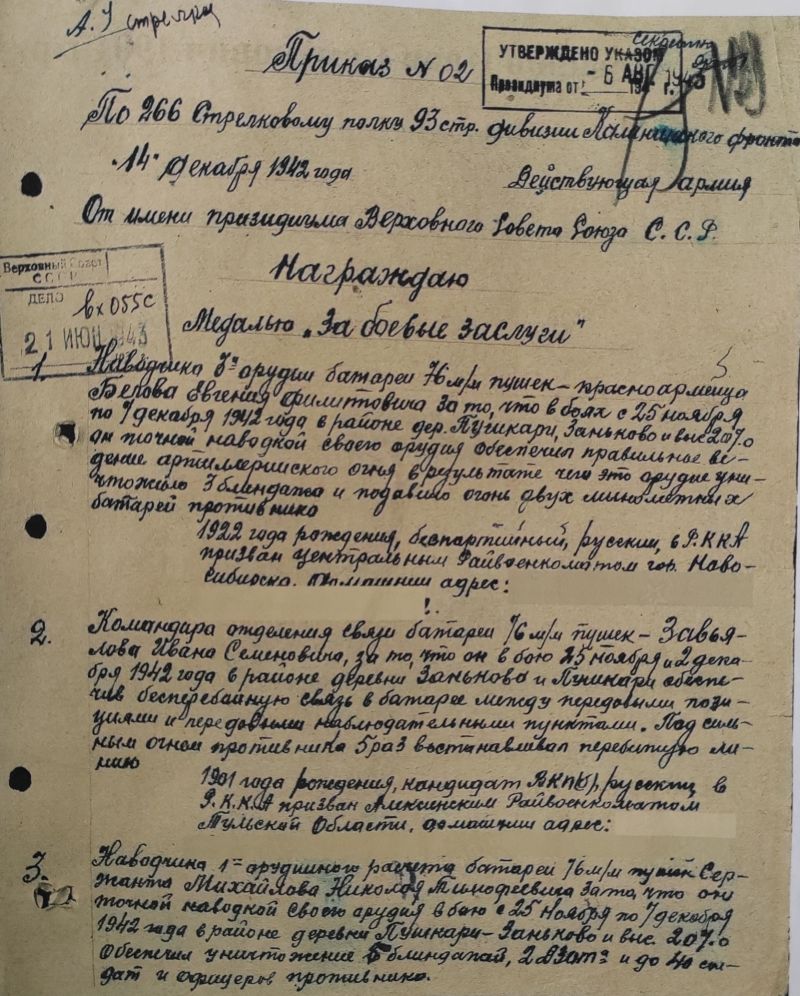 А. У стрелка
Приказ N 02
УТВЕРЖДЕНО УКАЗОМ
Президиума от - 6 АВГ 1943 г.
По 266 Стрелковому полку 93 стр. дивизии Калининского фронта
"14" декабря 1942 года Действующая армия
От имени президиума Верховного Совета Союза С.С.Р.
Награждаю
Верховный Совет
СССР
ДЕЛО вх 055с
21 ИЮН 1943
Медалью "За боевые заслуги"
1. Наводчика 3го орудия батареи 76 м/м пушек - красноармейца
Белова Евгения Филипповича за то, что в боях с 25 ноября
по 7 декабря 1942 года в районе дер. Пушкари, Заньково и выс 207.0
он точной наводкой своего орудия обеспечил правильное ве-
дение артиллерийского огня в результате чего это орудие уни-
чтожило 3 блиндажа и подавило огонь двух минометных
батарей противника
1922 года рождения, беспартийный, русский, в Р.К.К.А
призван центральным Райвоенкоматом гор. Ново-
Сибирска. Домашний адрес:
2. Командира отделения связи батареи 76 м/м пушек - Завья-
лова Ивана Семеновича, за то, что он в бою 25 ноября и 2 дека-
бря 1942 года в районе деревни Заньково и Пушкари обеспе-
чив бесперебайную связь в батарее между передовыми пози-
циями и передовыми наблюдательными пунктами. Под силь-
ным огнем противника 5 раз востанавливал перебитую ли-
нию
1901 года рождения, кандидат ВКП(б), русский, в
Р.К.К.А призван Алексинским Райвоенкоматом
Тульской Области, домашний адрес:
3. Наводчика 1го орудийного расчета батареи 76 м/м пушек Сер-
жанта Михайлова Николая Тимофеевича за то, что он
точной наводкой своего орудия в бою с 25 ноября по 7 декабря
1942 года в районе деревни Пушкари-Заньково и выс. 207.0
Обеспечил уничтожение 5 блиндажей, 2 и до 40 сол-
дат и офицеров противника.